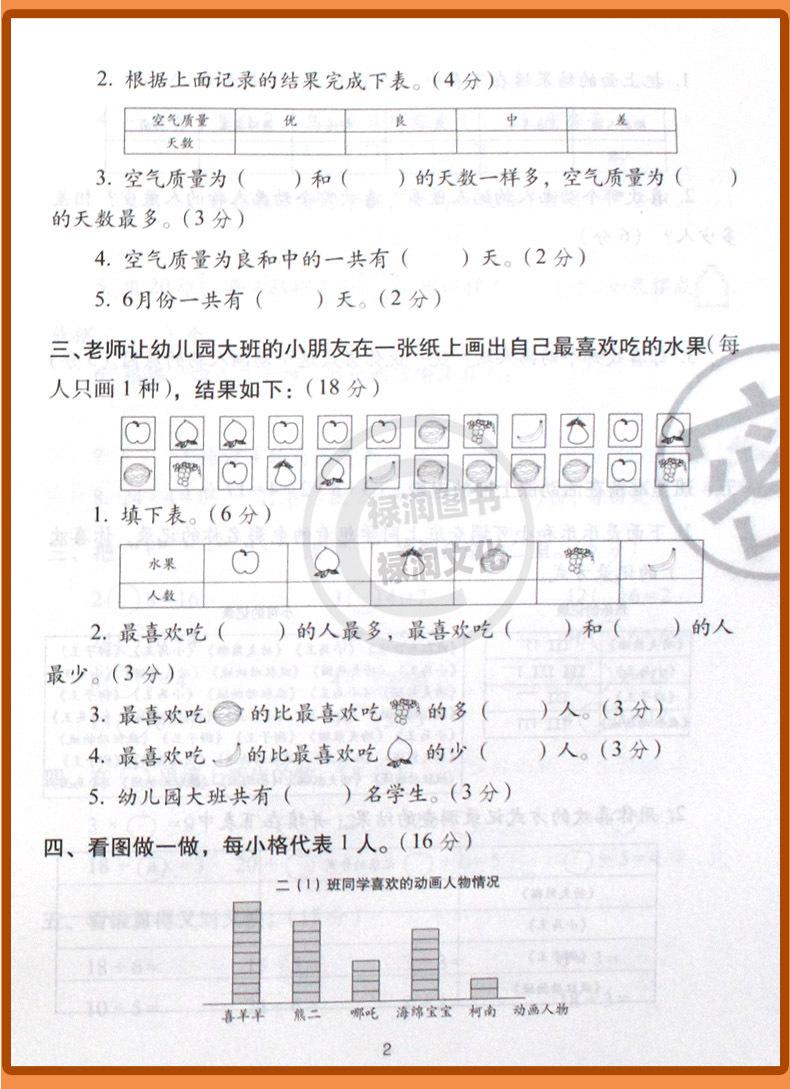 2. 根据上面记录的结果完成下表。(4分)
空气质量 优 良 中 差
天数
3. 空气质量为( )和( )的天数一样多，空气质量为( )
的天数最多。(3分)
4. 空气质量为良和中的一共有( )天。(2分)
5. 6月份一共有( )天。(2分)
三、老师让幼儿园大班的小朋友在一张纸上画出自己最喜欢吃的水果(每
人只画1种)，结果如下：(18分)
1. 填下表。(6分)
水果
人数
2. 最喜欢吃( )的人最多，最喜欢吃( )和( )的人
最少。(3分)
3. 最喜欢吃 的比最喜欢吃 的多( )人。(3分)
4. 最喜欢吃 的比最喜欢吃 的少( )人。(3分)
5. 幼儿园大班共有( )名学生。(3分)
四、看图做一做，每小格代表1人。(16分)
二(1)班同学喜欢的动画人物情况
喜羊羊 熊二 哪吒 海绵宝宝 柯南 动画人物
2
禄润图书
禄润文化
密